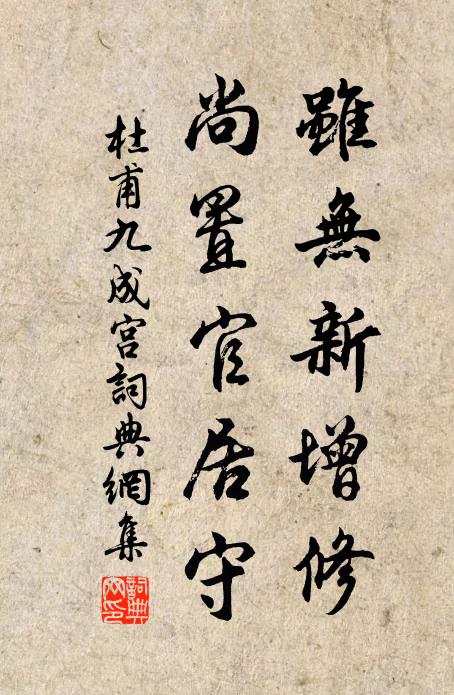 雖無新增修
尚置官居守
杜甫九成宮詞典網集
詞典網印